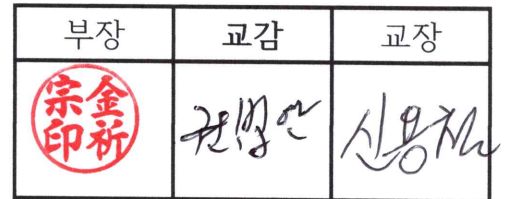 부장 교감 교장
金祈宗印 권영안 신용철